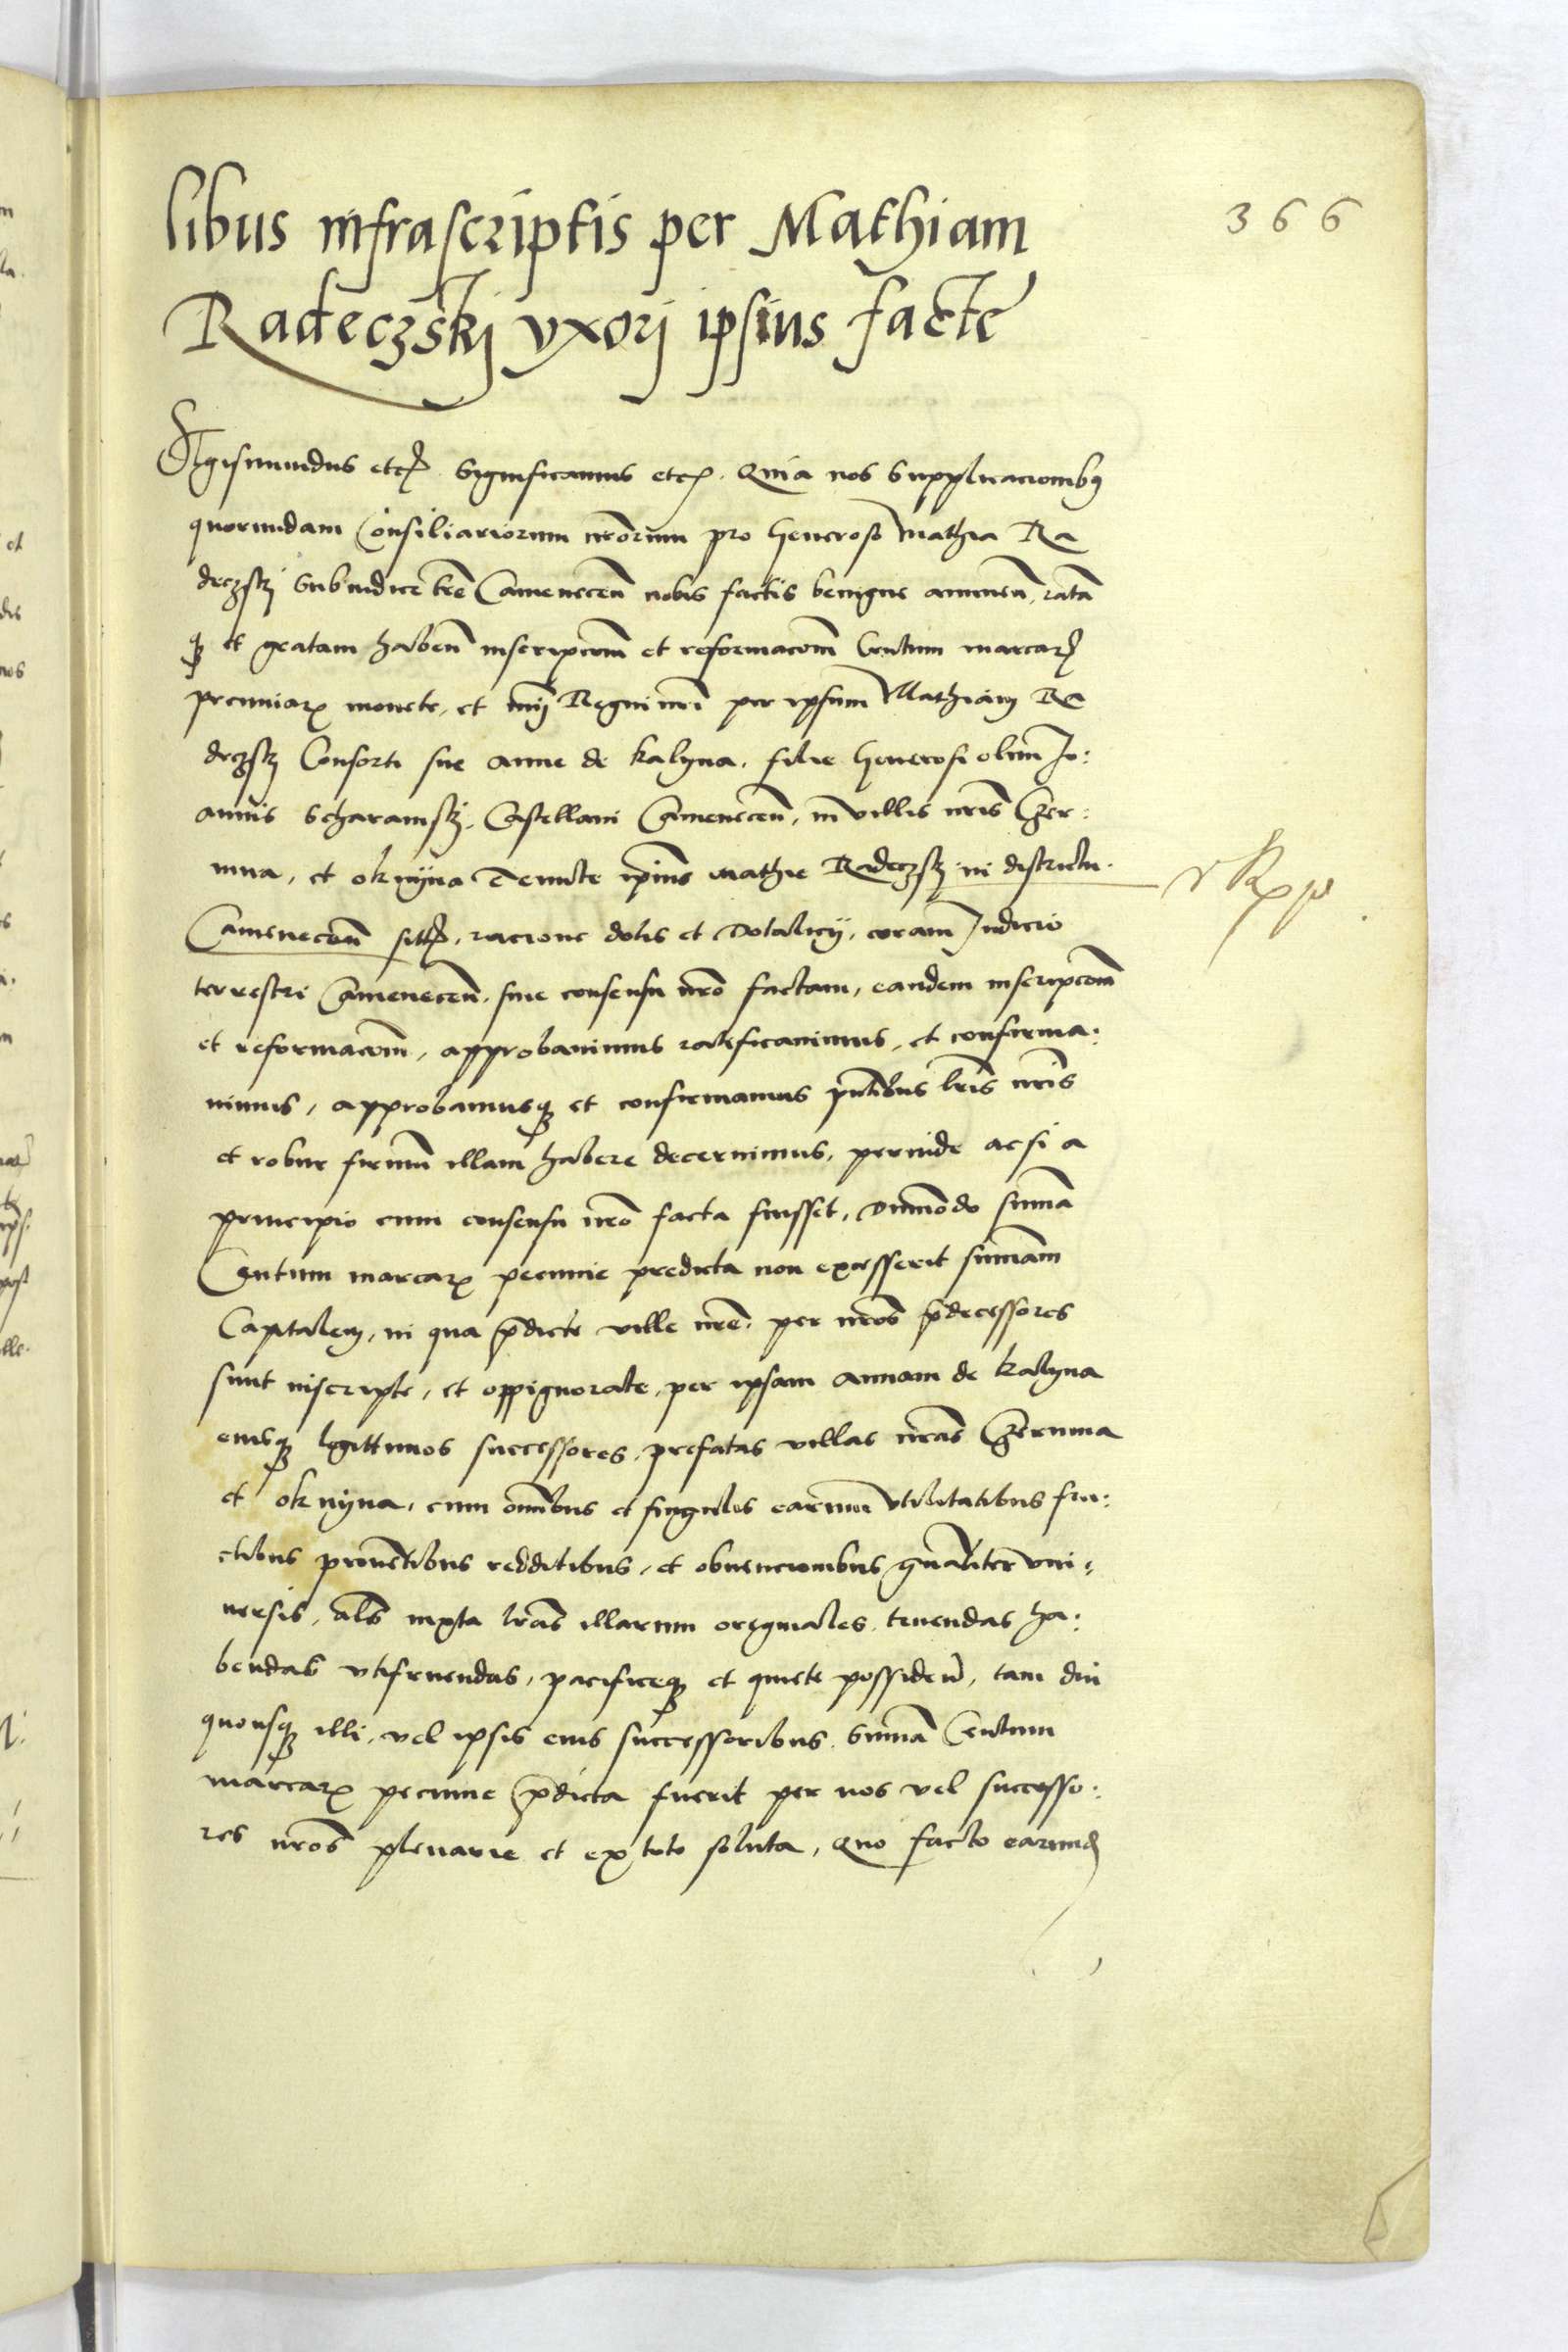 libus infrascriptis per Mathiam
366
Radeczskj vxorj ipsius facte
Sigismundus etc. Significamus etc. Quia nos Supplicacionib9
quorundam Consiliariorum nrorum pro Generoso Mathia Ra
deczskj Subiudice tre Camenecen nobis factis benigne annuen, ratā
q et gratam haben inscripcom et reformacom Centum marcar
pecuniar monete, et Regni nri per ipsum Mathiam Ra
deczskj Consorti sue Anne de kalyna, filie Generosi olim Jo:
annis Scharamskj, Castellani Camenecen, in villis nris Czer:
mna, et oknyna Tenute ipsius Mathie Radeczskj in districtu
Camenecen sitis, racione dotis et Dotalicij, coram Judicio
terrestri Camenecen, sine consensu nro factam, eandem inscripcom
et reformacom, approbauimus ratificauimus, et confirma:
uimus, approbamusq et confirmamus pntibus lris nris
et robur firmum illam habere decernimus, perinde acsi a
principio cum consensu nro facta fuisset, Dummodo summa
Centum marcar pecunie predicta non excesserit summam
Capitalem, in qua pdicte ville nre, per nros pdecessores
sunt inscripte, et oppignorate, per ipsam Annam de kalyna
eiusq legittimos successores, prefatas villas nras Czermna
et oknyna, cum omibus et singulis earum vtilitatibus fru:
ctibus prouentibus redditibus, et obuencionibus gnaliter vni:
uersis, als iuxta lras illarum originales, tenendas ha:
bendas vtifruendas, pacificeq et quiete possiden, tam diu
quousq illi, vel ipsis eius successoribus, Summa Centum
marcar pecunie pdicta fuerit per nos vel successo:
res nros plenarie et ex toto soluta, Quo facto earund